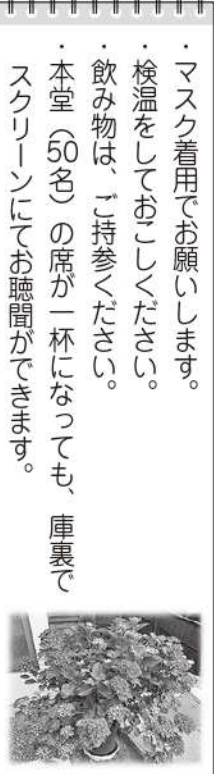 ・マスク着用でお願いします。
・検温をしておこしください。
・飲み物は、ご持参ください。
・本堂（50名）の席が一杯になっても、庫裏で
スクリーンにてお聴聞ができます。